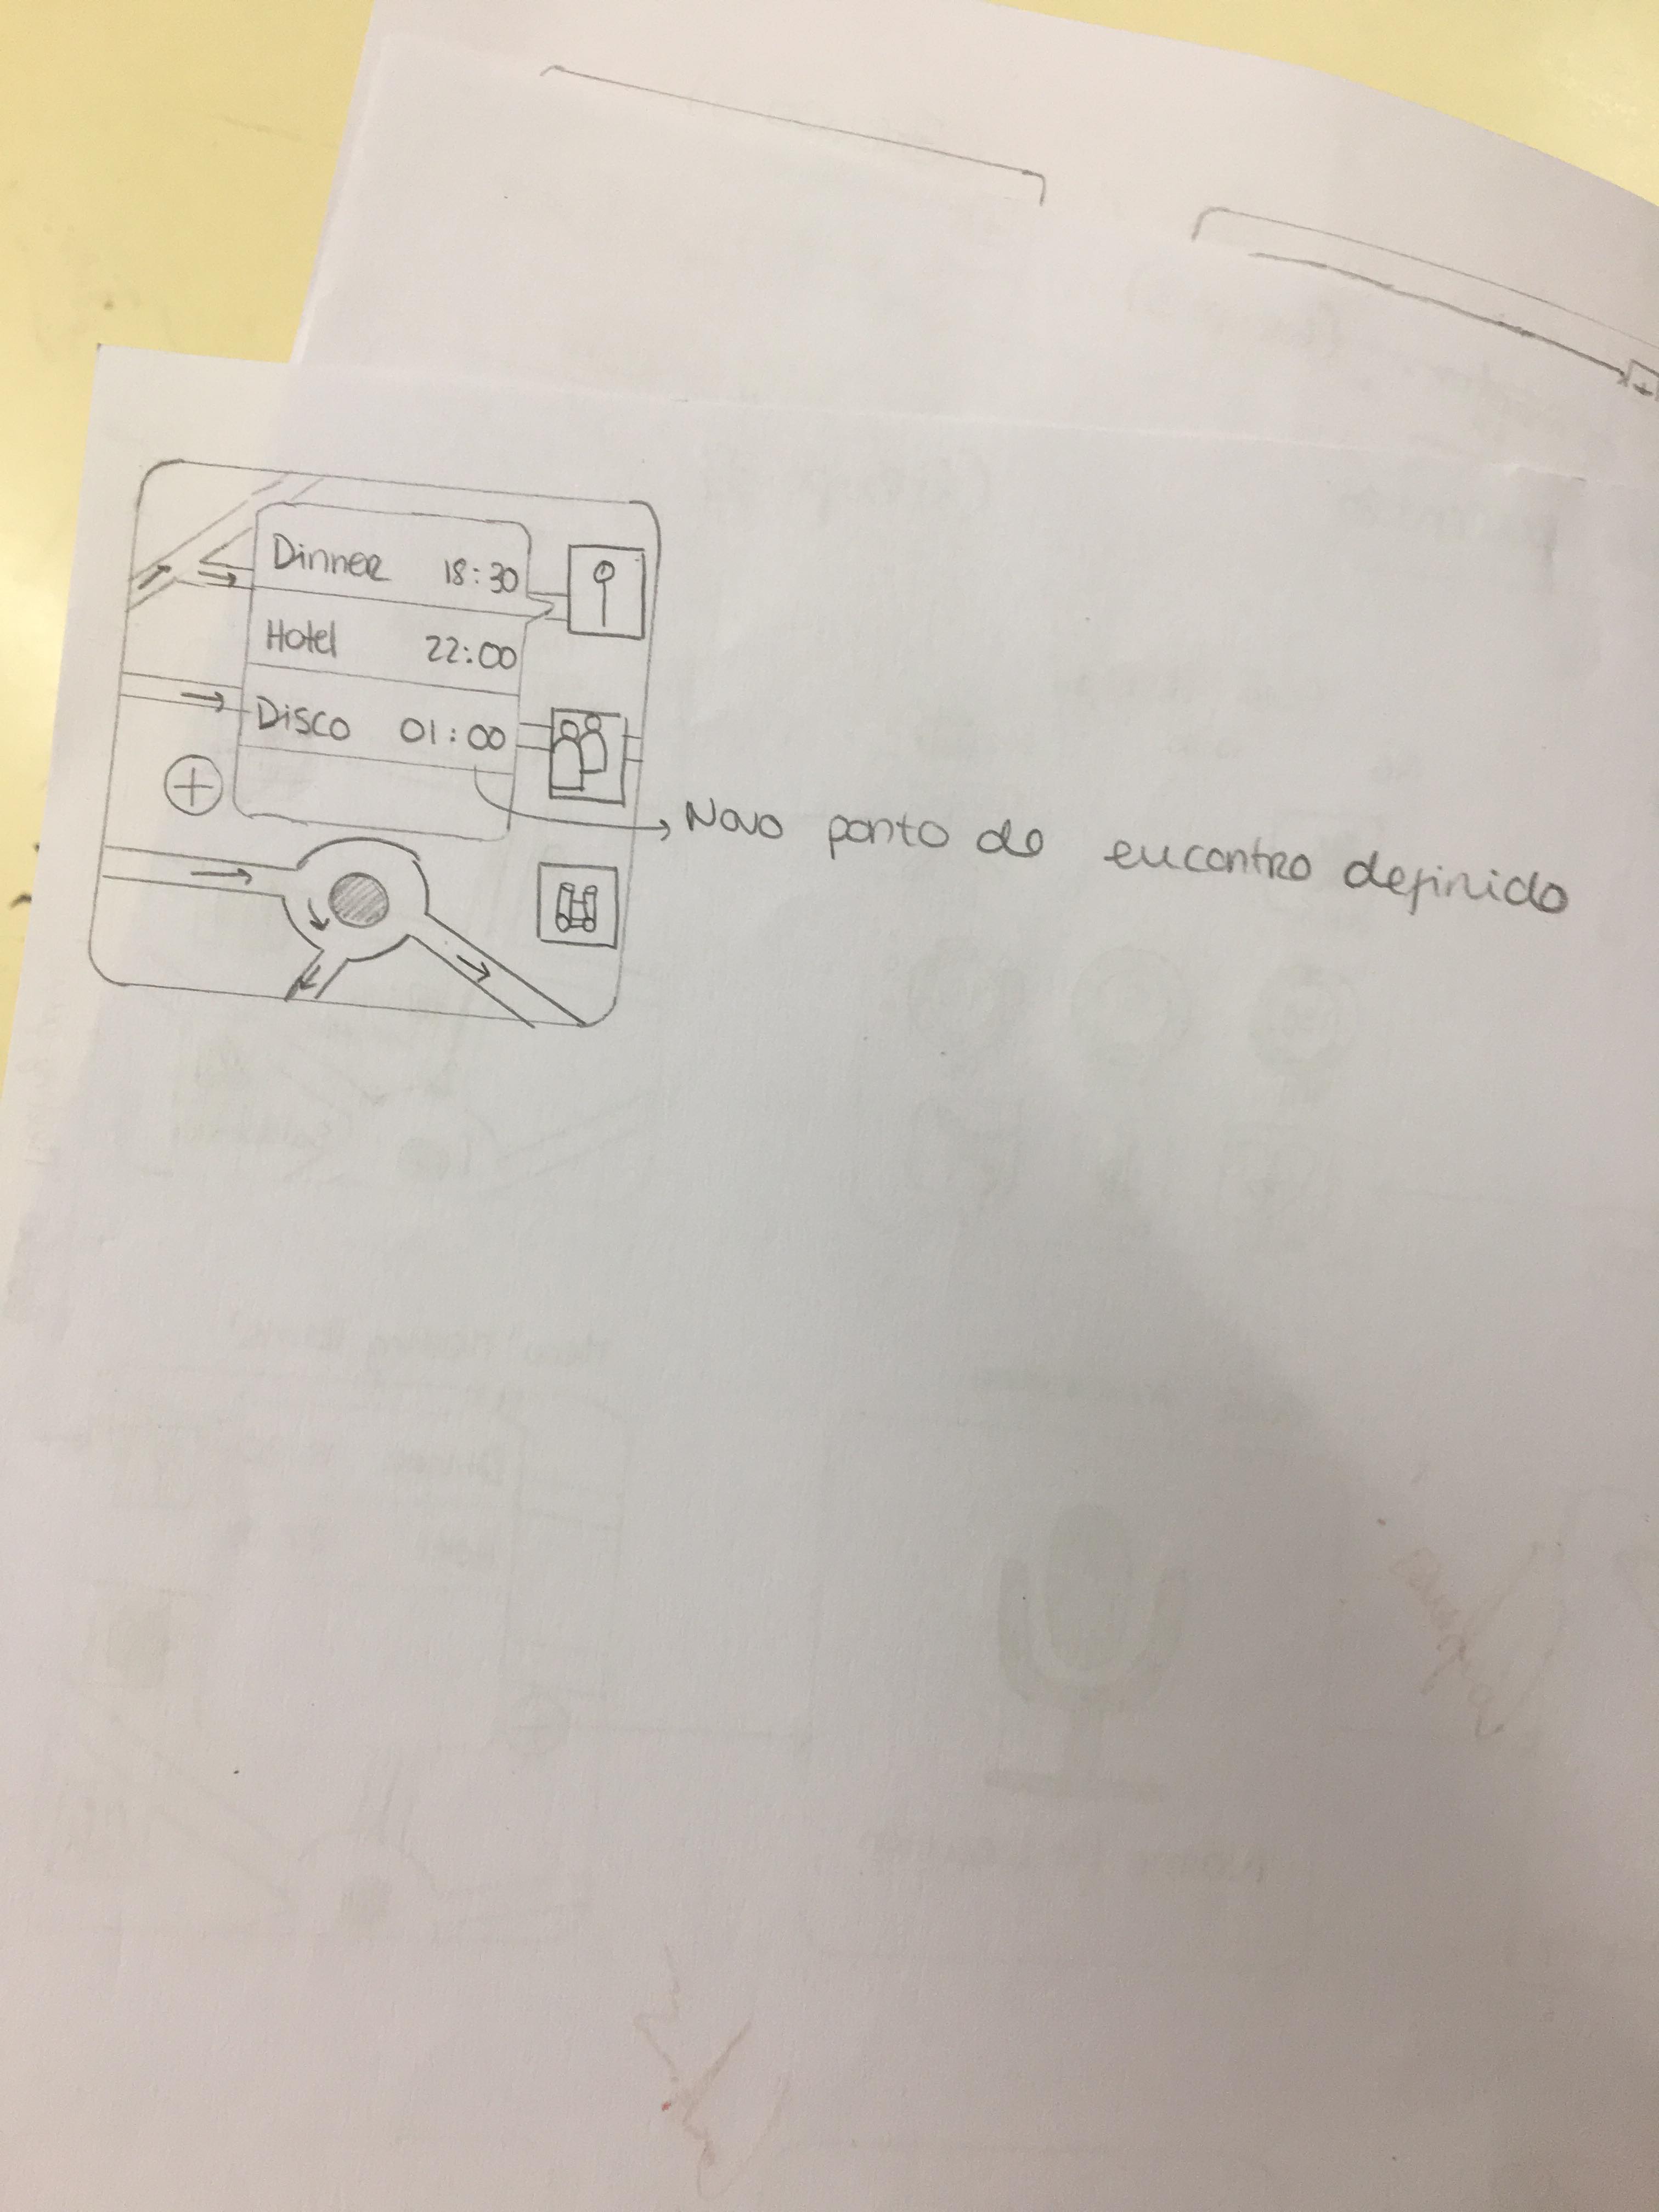 Dinner 18:30
Hotel 22:00
Disco 01:00
Novo ponto de encontro definido